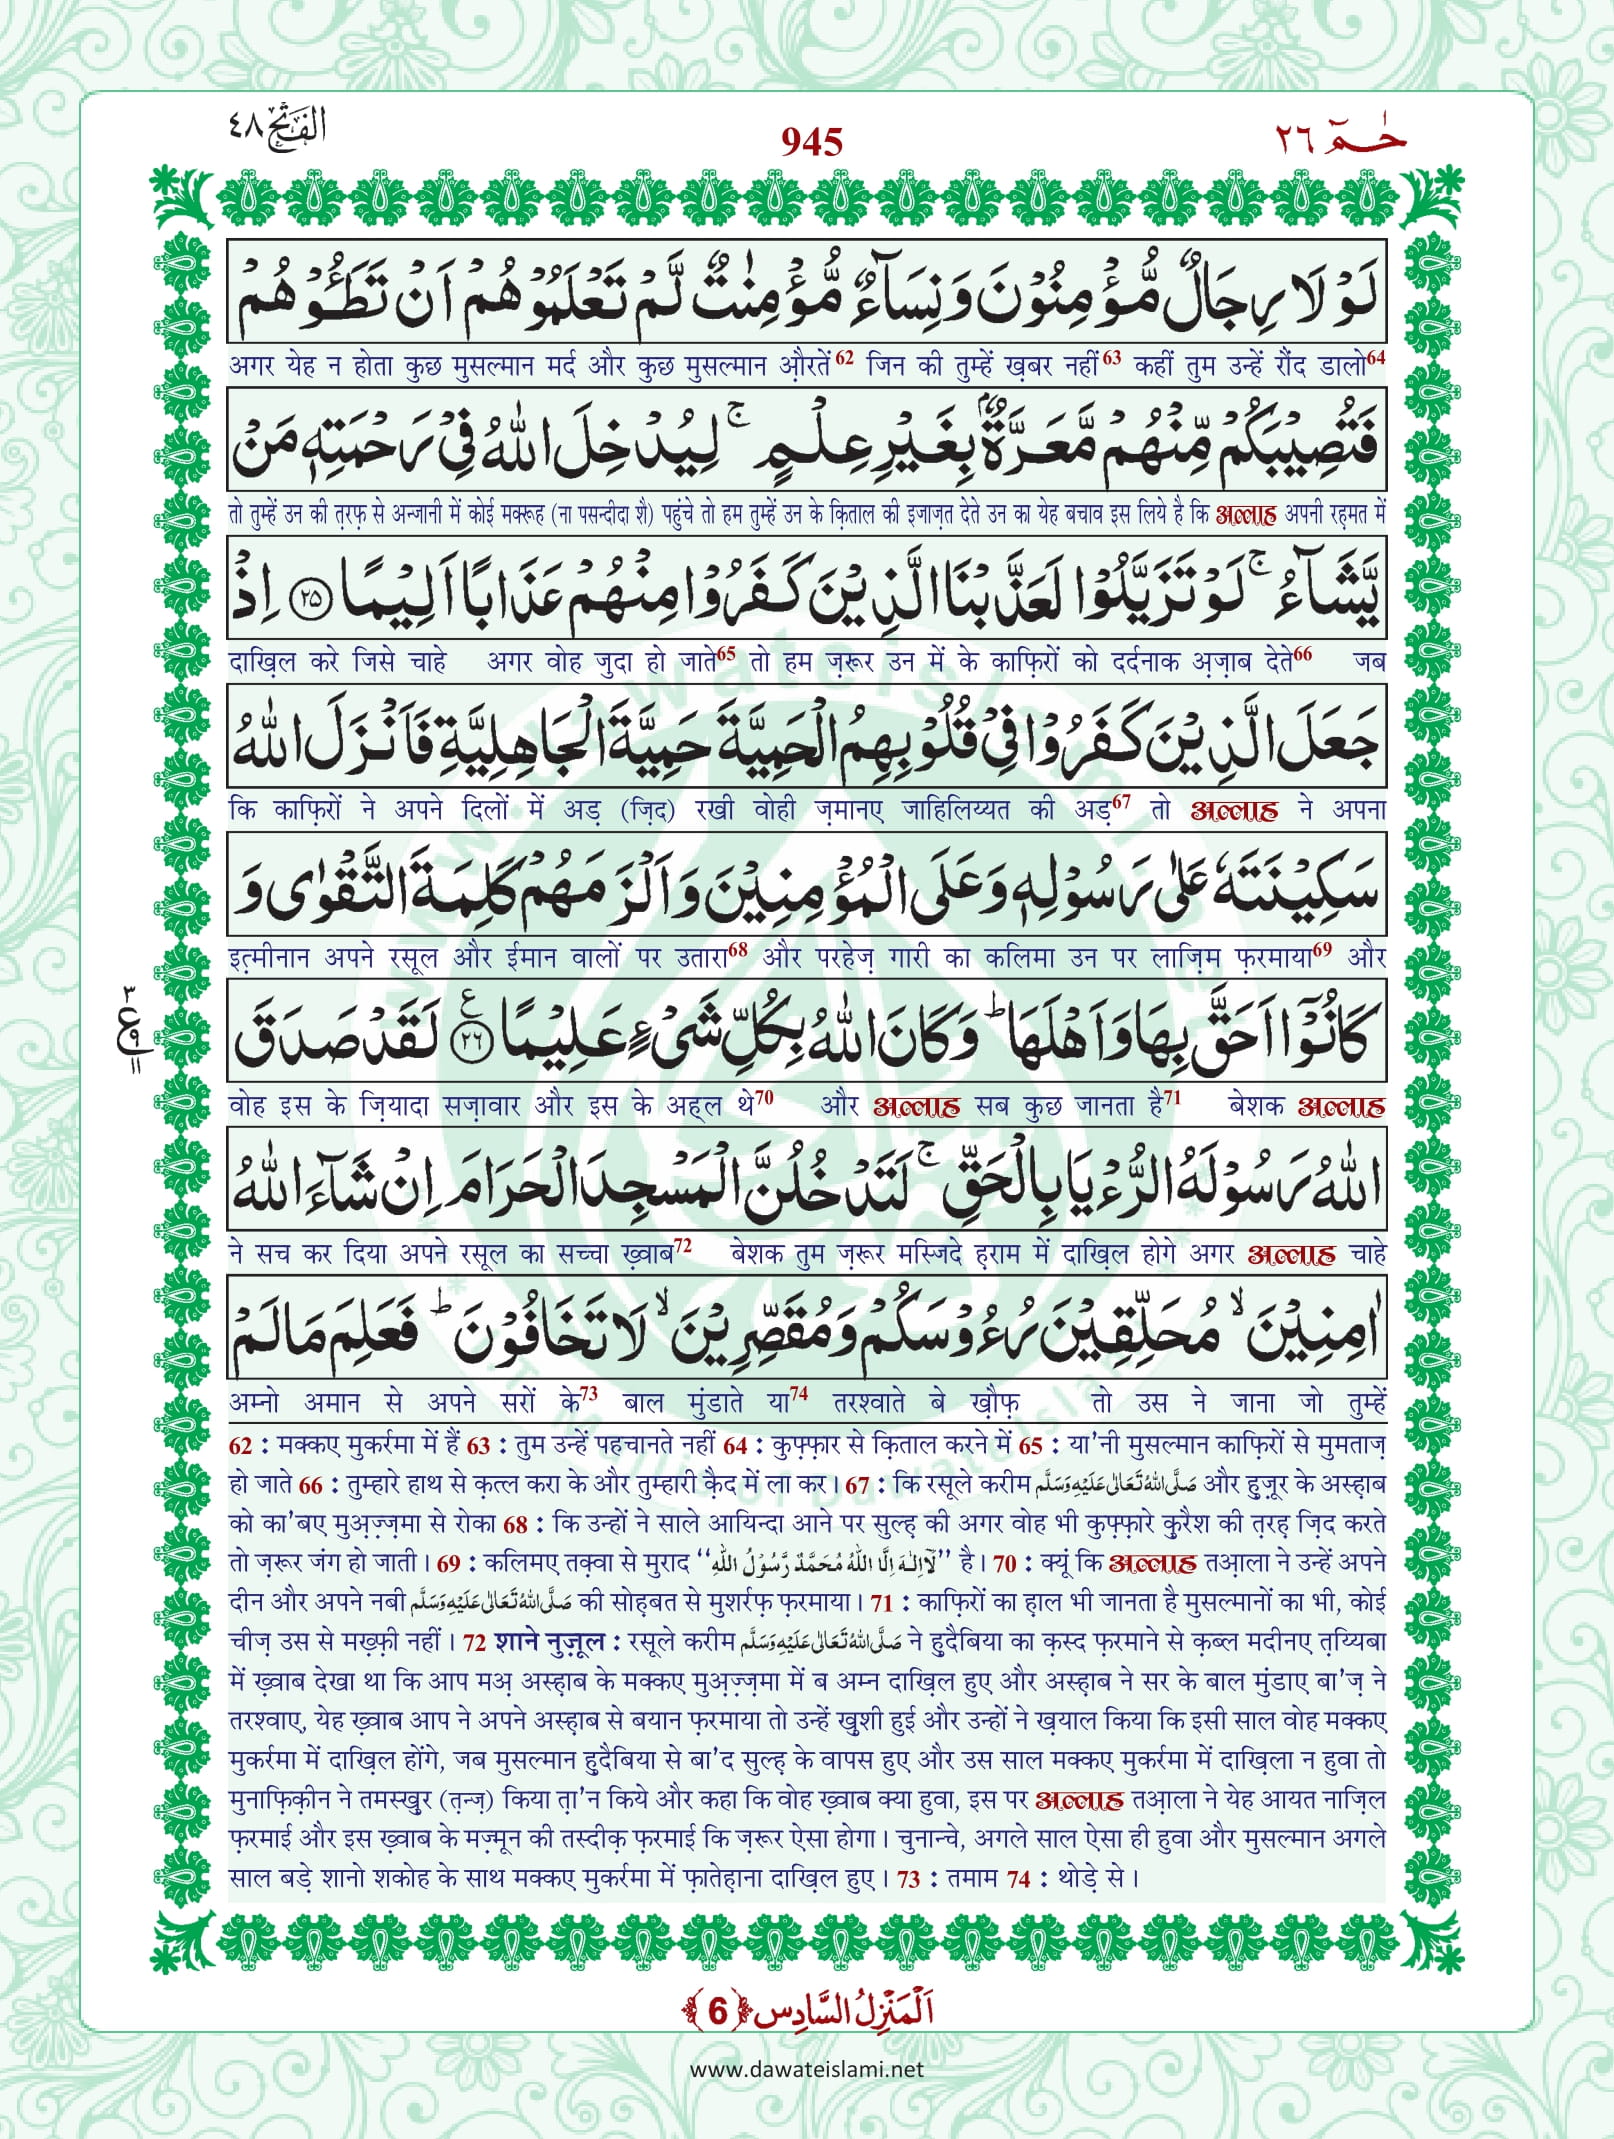 الفتح ٤٨
945
حٰمٓ ٢٦
لَوْ لَا رِجَالٌ مُّؤْمِنُوْنَ وَ نِسَآءٌ مُّؤْمِنٰتٌ لَّمْ تَعْلَمُوْهُمْ اَنْ تَطَـُٔوْهُمْ
अगर येह न होता कुछ मुसल्मान मर्द और कुछ मुसल्मान औ़रतें62 जिन की तुम्हें ख़बर नहीं63 कहीं तुम उन्हें रौंद डालो64
فَتُصِیْبَكُمْ مِّنْهُمْ مَّعَرَّةٌۢ بِغَیْرِ عِلْمٍۚ لِیُدْخِلَ اللّٰهُ فِیْ رَحْمَتِهٖ مَنْ
तो तुम्हें उन की त़रफ़ से अन्जानी में कोई मक्रूह (ना पसन्दीदा शै) पहुंचे तो हम तुम्हें उन के क़िताल की इजाज़त देते उन का येह बचाव इस लिये है कि अल्लाह अपनी रह़मत में
یَّشَآءُۚ لَوْ تَزَیَّلُوْا لَعَذَّبْنَا الَّذِیْنَ كَفَرُوْا مِنْهُمْ عَذَابًا اَلِیْمًا ﴿۲۵﴾ اِذْ
दाख़िल करे जिसे चाहे अगर वोह जुदा हो जाते65 तो हम ज़रूर उन में के काफ़िरों को दर्दनाक अ़ज़ाब देते66 जब
جَعَلَ الَّذِیْنَ كَفَرُوْا فِیْ قُلُوْبِهِمُ الْحَمِیَّةَ حَمِیَّةَ الْجَاهِلِیَّةِ فَاَنْزَلَ اللّٰهُ
कि काफ़िरों ने अपने दिलों में अड़ (ज़िद) रखी वोही ज़मानए जाहिलिय्यत की अड़67 तो अल्लाह ने अपना
سَكِیْنَتَهٗ عَلٰى رَسُوْلِهٖ وَ عَلَى الْمُؤْمِنِیْنَ وَ اَلْزَمَهُمْ كَلِمَةَ التَّقْوٰى وَ
इत़्मीनान अपने रसूल और ईमान वालों पर उतारा68 और परहेज़ गारी का कलिमा उन पर लाज़िम फ़रमाया69 और
كَانُوْۤا اَحَقَّ بِهَا وَ اَهْلَهَاؕ وَ كَانَ اللّٰهُ بِكُلِّ شَیْءٍ عَلِیْمًا ﴿۲۶﴾ع لَقَدْ صَدَقَ
٣ ع ٩ ١١
वोह इस के ज़ियादा सज़ावार और इस के अहल थे70 और अल्लाह सब कुछ जानता है71 बेशक अल्लाह
اللّٰهُ رَسُوْلَهُ الرُّءْیَا بِالْحَقِّۚ لَتَدْخُلُنَّ الْمَسْجِدَ الْحَرَامَ اِنْ شَآءَ اللّٰهُ
ने सच कर दिया अपने रसूल का सच्चा ख़्वाब72 बेशक तुम ज़रूर मस्जिदे ह़राम में दाख़िल होगे अगर अल्लाह चाहे
اٰمِنِیْنَۙ مُحَلِّقِیْنَ رُءُوْسَكُمْ وَ مُقَصِّرِیْنَۙ لَا تَخَافُوْنَؕ فَعَلِمَ مَا لَمْ
अम्नो अमान से अपने सरों के73 बाल मुंडाते या74 तरश्वाते बे ख़ौफ़ तो उस ने जाना जो तुम्हें
62 : मक्कए मुकर्रमा में हैं 63 : तुम उन्हें पहचानते नहीं 64 : कुफ़्फ़ार से क़िताल करने में 65 : या'नी मुसल्मान काफ़िरों से मुमताज़
हो जाते 66 : तुम्हारे हाथ से क़त्ल करा के और तुम्हारी क़ैद में ला कर। 67 : कि रसूले करीम صَلَّى اللهُ تَعَالٰى عَلَيْهِ وَسَلَّم और हुज़ूर के अस्ह़ाब
को का'बए मुअ़ज़्ज़मा से रोका 68 : कि उन्हों ने साले आयिन्दा आने पर सुल्ह़ की अगर वोह भी कुफ़्फ़ारे कु़रैश की त़रह़ ज़िद करते
तो ज़रूर जंग हो जाती। 69 : कलिमए तक़्वा से मुराद ‘‘لَآ اِلٰهَ اِلَّا اللهُ مُحَمَّدٌ رَّسُوْلُ اللهِ’’ है। 70 : क्यूं कि अल्लाह तआ़ला ने उन्हें अपने
दीन और अपने नबी صَلَّى اللهُ تَعَالٰى عَلَيْهِ وَسَلَّم की सोह़बत से मुशर्रफ़ फ़रमाया। 71 : काफ़िरों का ह़ाल भी जानता है मुसल्मानों का भी, कोई
चीज़ उस से मख़्फ़ी नहीं। 72 शाने नुज़ूल : रसूले करीम صَلَّى اللهُ تَعَالٰى عَلَيْهِ وَسَلَّم ने ह़ुदैबिया का क़स्द फ़रमाने से क़ब्ल मदीनए त़य्यिबा
में ख़्वाब देखा था कि आप मअ़ अस्ह़ाब के मक्कए मुअ़ज़्ज़मा में ब अम्न दाख़िल हुए और अस्ह़ाब ने सर के बाल मुंडाए बा'ज़ ने
तरश्वाए, येह ख़्वाब आप ने अपने अस्ह़ाब से बयान फ़रमाया तो उन्हें ख़ुशी हुई और उन्हों ने ख़याल किया कि इसी साल वोह मक्कए
मुकर्रमा में दाख़िल होंगे, जब मुसल्मान ह़ुदैबिया से बा'द सुल्ह़ के वापस हुए और उस साल मक्कए मुकर्रमा में दाख़िला न हुवा तो
मुनाफ़िक़ीन ने तमस्ख़ुर (त़न्ज़) किया त़ा'न किये और कहा कि वोह ख़्वाब क्या हुवा, इस पर अल्लाह तआ़ला ने येह आयत नाज़िल
फ़रमाई और इस ख़्वाब के मज़्मून की तस्दीक़ फ़रमाई कि ज़रूर ऐसा होगा। चुनान्चे, अगले साल ऐसा ही हुवा और मुसल्मान अगले
साल बड़े शानो शकोह के साथ मक्कए मुकर्रमा में फ़ातेह़ाना दाख़िल हुए। 73 : तमाम 74 : थोड़े से।
اَلْمَنْزِلُ السَّادِس ﴿6﴾
www.dawateislami.net